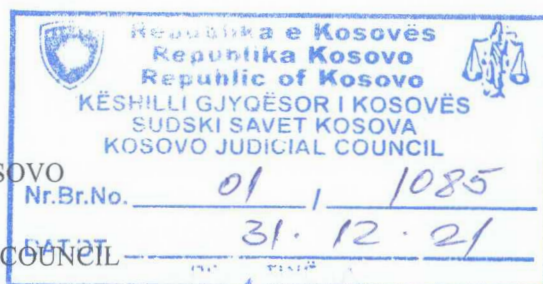 Republika e Kosovës
Republika Kosovo
Republic of Kosovo
KËSHILLI GJYQËSOR I KOSOVËS
SUDSKI SAVET KOSOVA
KOSOVO JUDICIAL COUNCIL
OVO
Nr.Br.No. 01 / 1085
31. 12. 21
COUNCIL